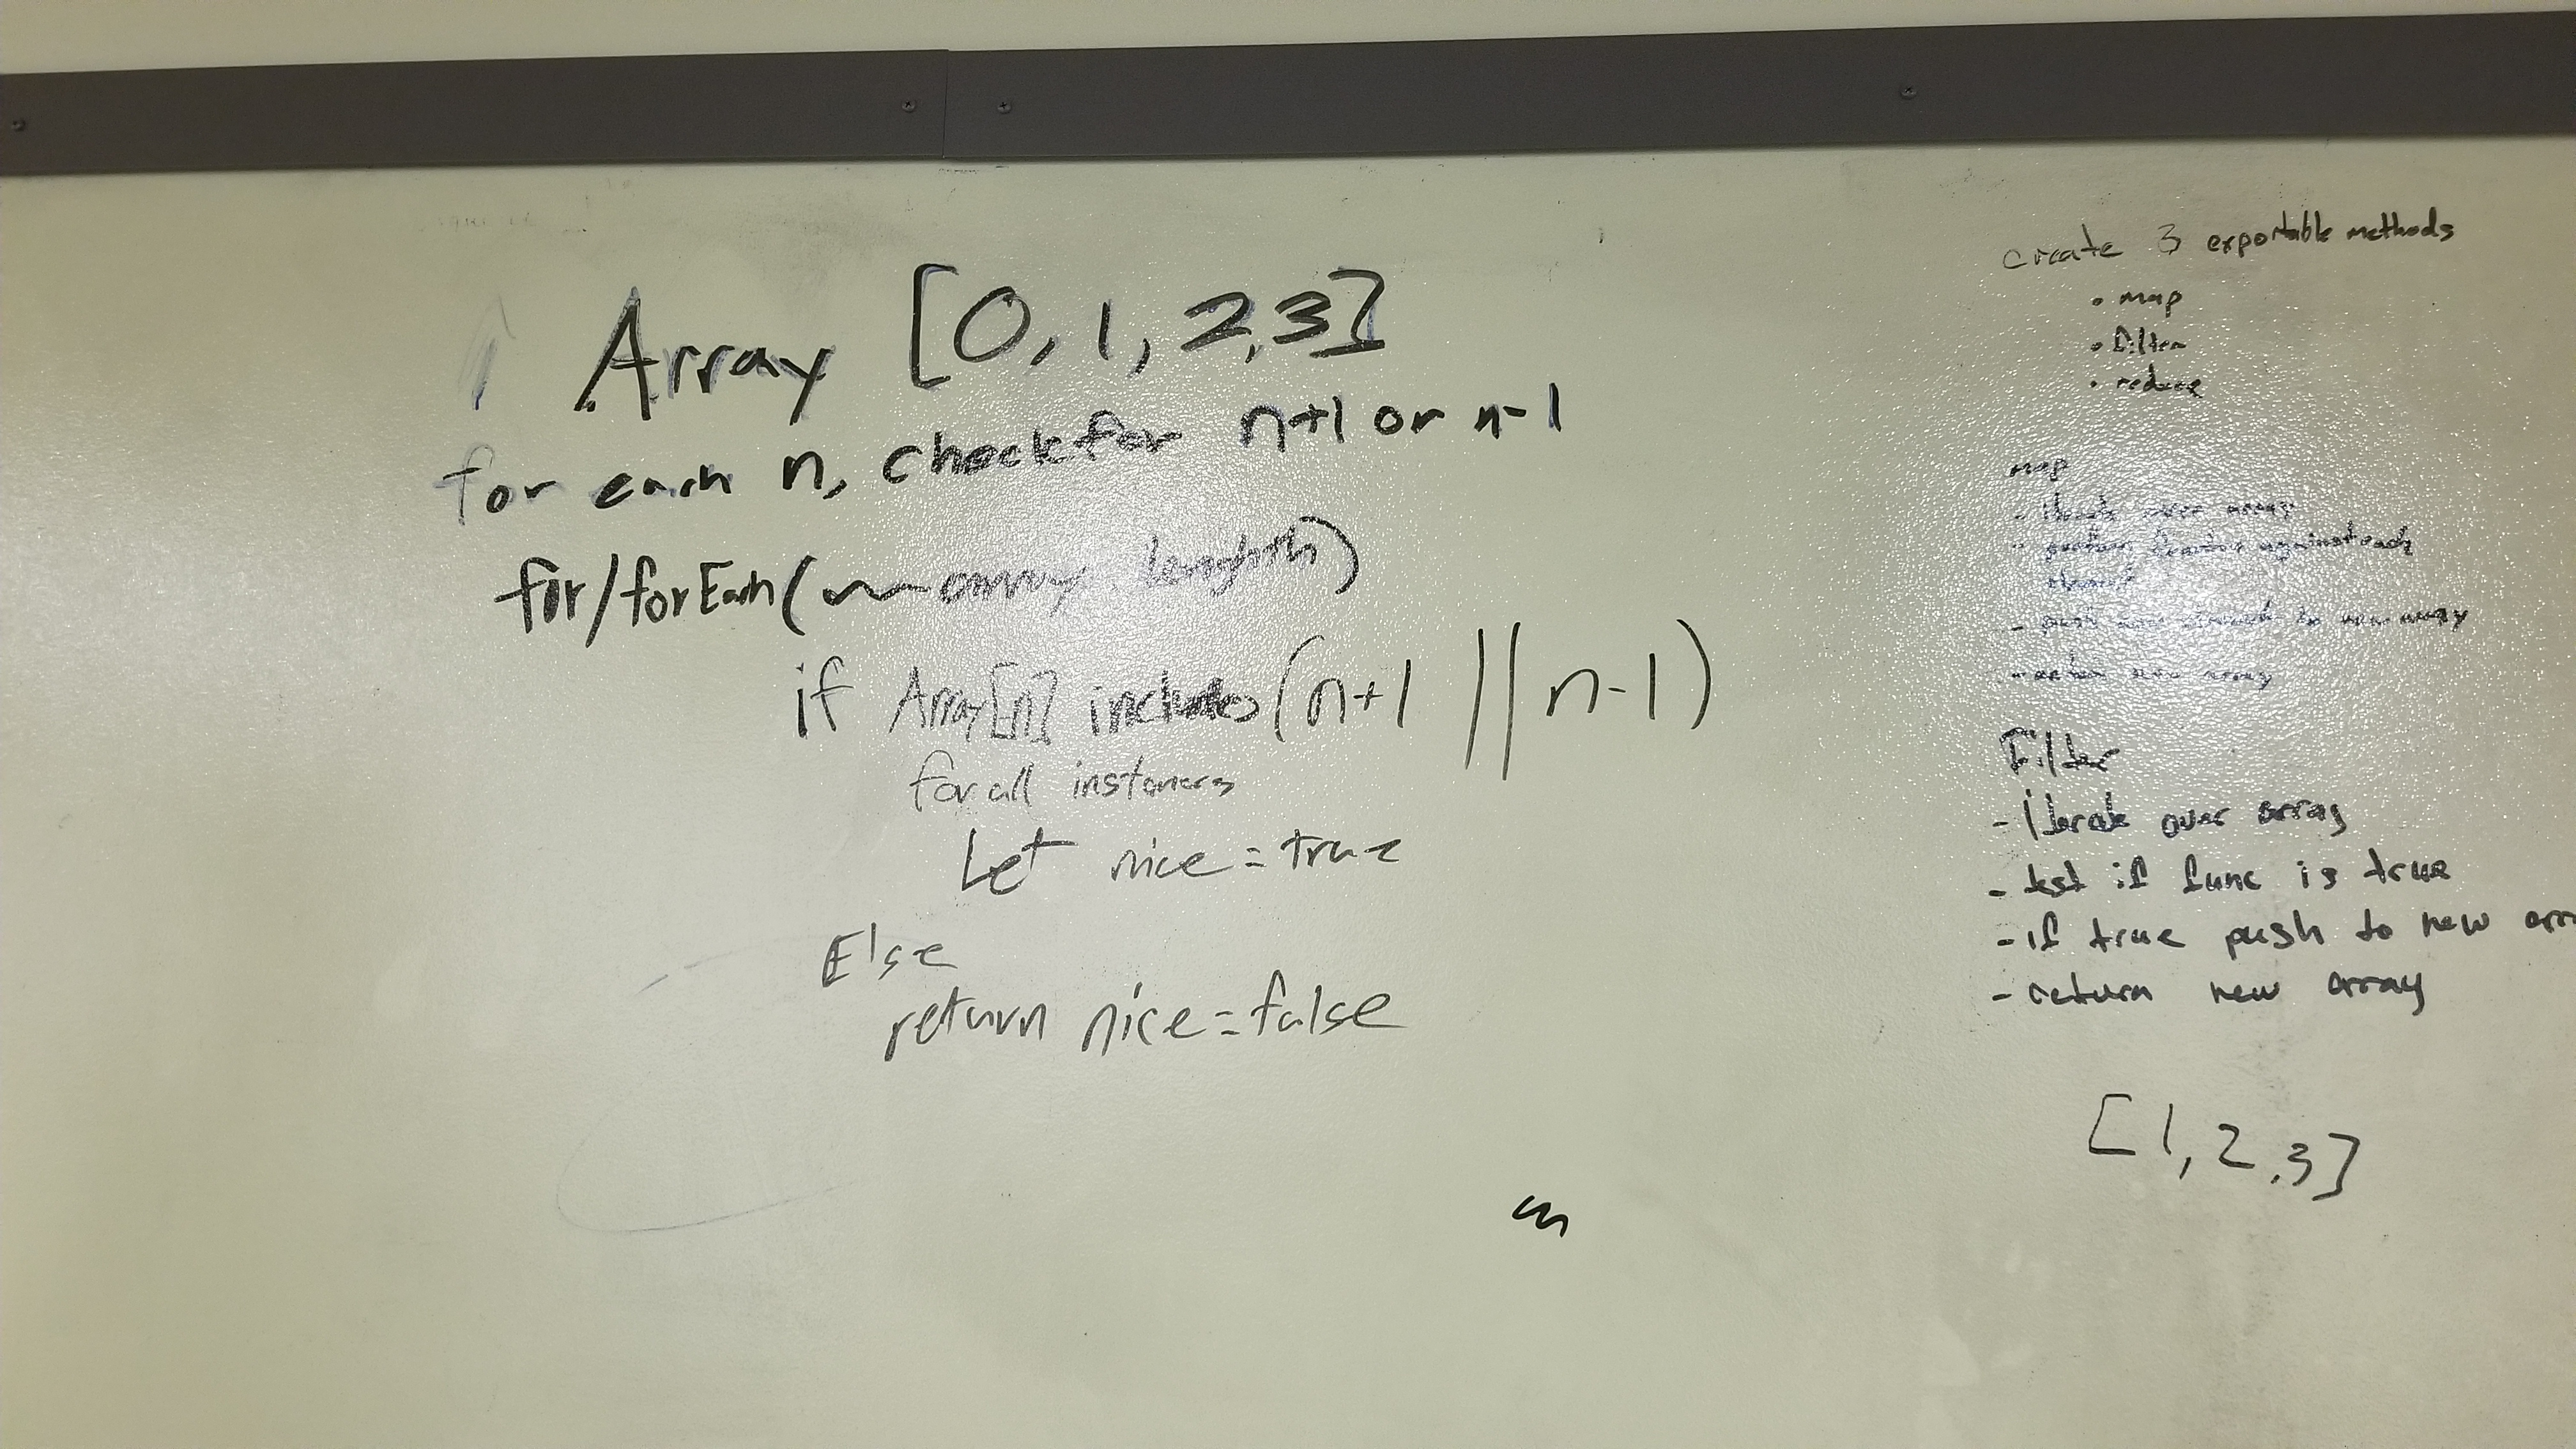 Array [0, 1, 2, 3]
for each n, check for n+1 or n-1
for/forEach( array.length)
if Array[n] includes (n+1 || n-1)
for all instances
Let nice = true
Else
return nice = false
create 3 exportable methods
• map
• filter
• reduce
map
- iterate over array
- against each
element
- push new element to new array
- return new array
Filter
- iterate over array
- test if func is true
- if true push to new arr
- return new array
[1, 2, 3]